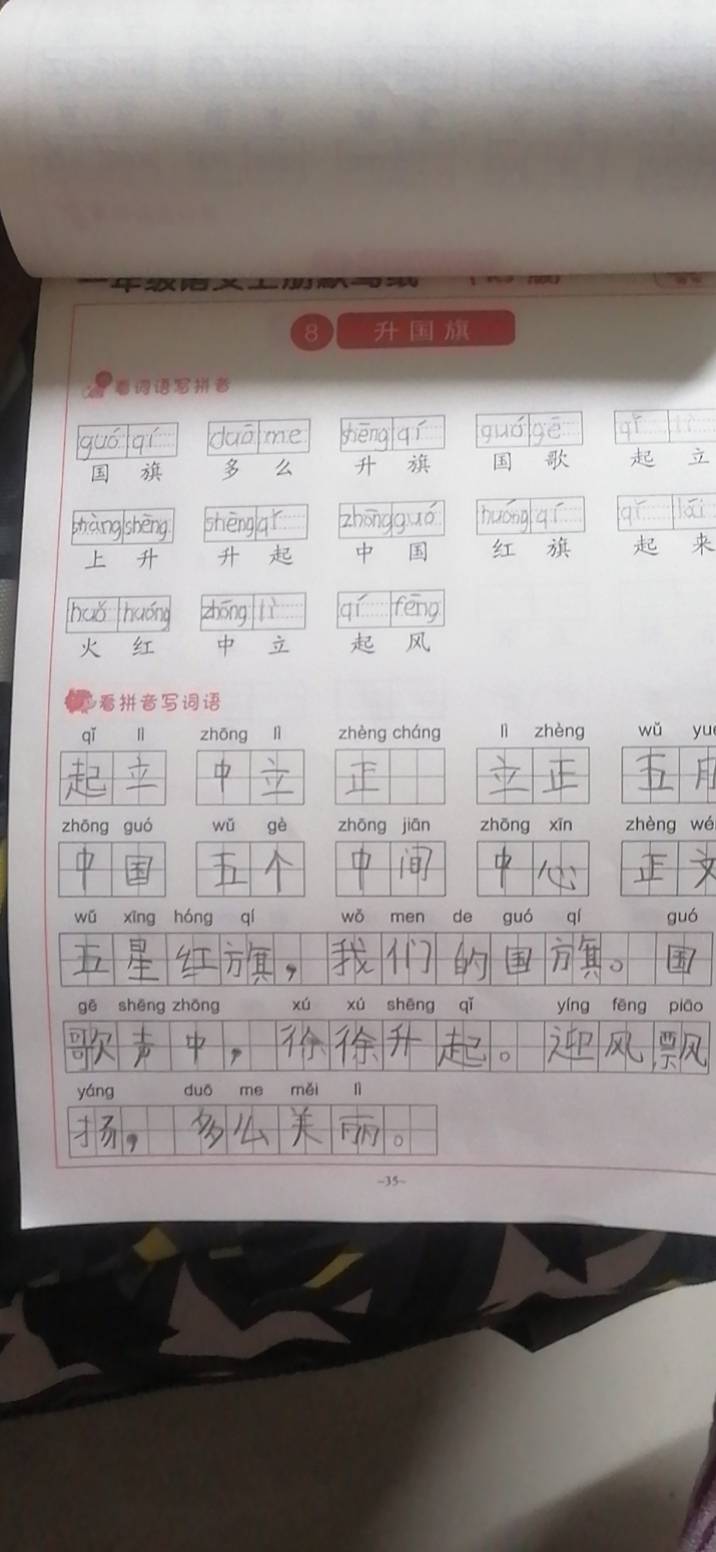 一年级语文上册默写纸
8 升国旗
看词语写拼音
guó qí duō me shēng qí guó gē qǐ lì
国旗 多么 升旗 国歌 起立
shàng shēng shēng qǐ zhōng guó huóng qí qǐ lái
上升 升起 中国 红旗 起来
huǒ huóng zhōng lì qí fēng
火红 中立 起风
看拼音写词语
qǐ lì zhōng lì zhèng cháng lì zhèng wǔ yuè
起立 中立 正 立正 五月
zhōng guó wǔ gè zhōng jiān zhōng xīn zhèng wé
中国 五个 中间 中心 正文
wǔ xīng hóng qí wǒ men de guó qí guó
五星红旗，我们的国旗。国
gē shēng zhōng xú xú shēng qǐ yíng fēng piāo
歌声中，徐徐升起。迎风飘
yáng duō me měi lì
扬，多么美丽。
~35~